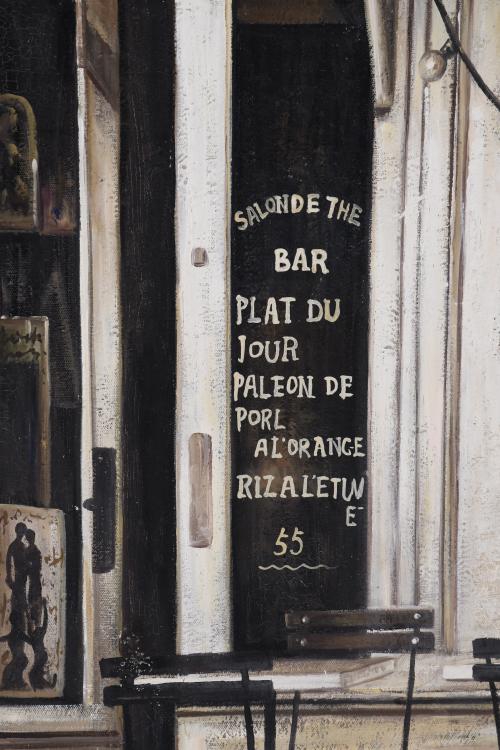 SALONDE THE
BAR
PLAT DU
JOUR
PALEON DE
PORL
A L'ORANGE
RIZ A L'ETUV
E
55